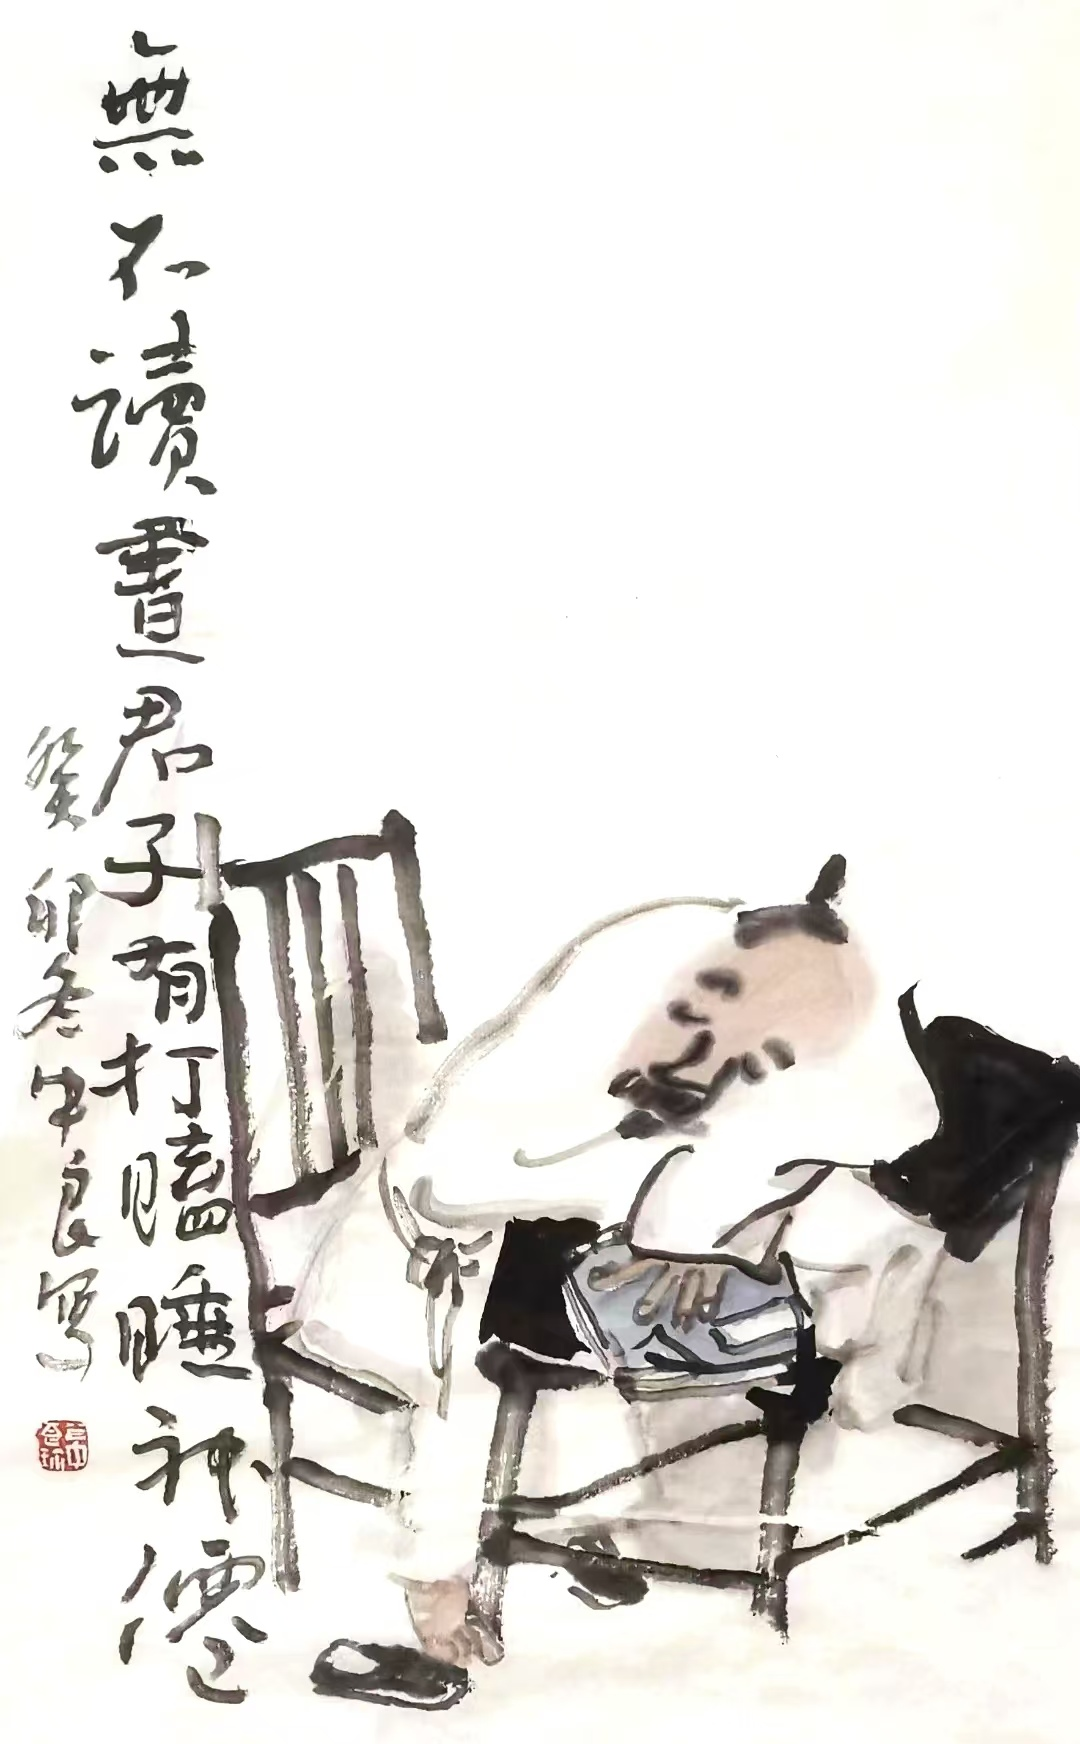 無不讀書君子有打瞌睡神僊
癸卯冬中良寫